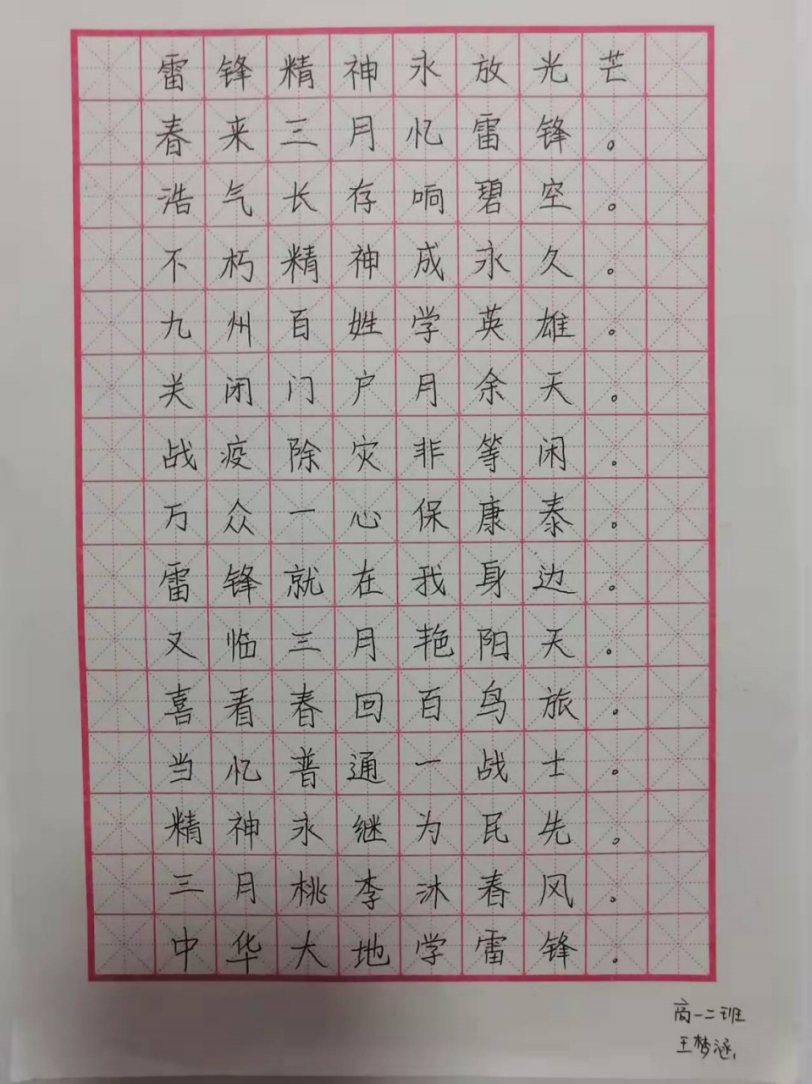 雷锋精神永放光芒
春来三月忆雷锋。
浩气长存响碧空。
不朽精神成永久。
九州百姓学英雄。
关闭门户月余天。
战疫除灾非等闲。
万众一心保康泰。
雷锋就在我身边。
又临三月艳阳天。
喜看春回百鸟旅。
当忆普通一战士。
精神永继为民先。
三月桃李沐春风。
中华大地学雷锋。
高一二班
王梦涵